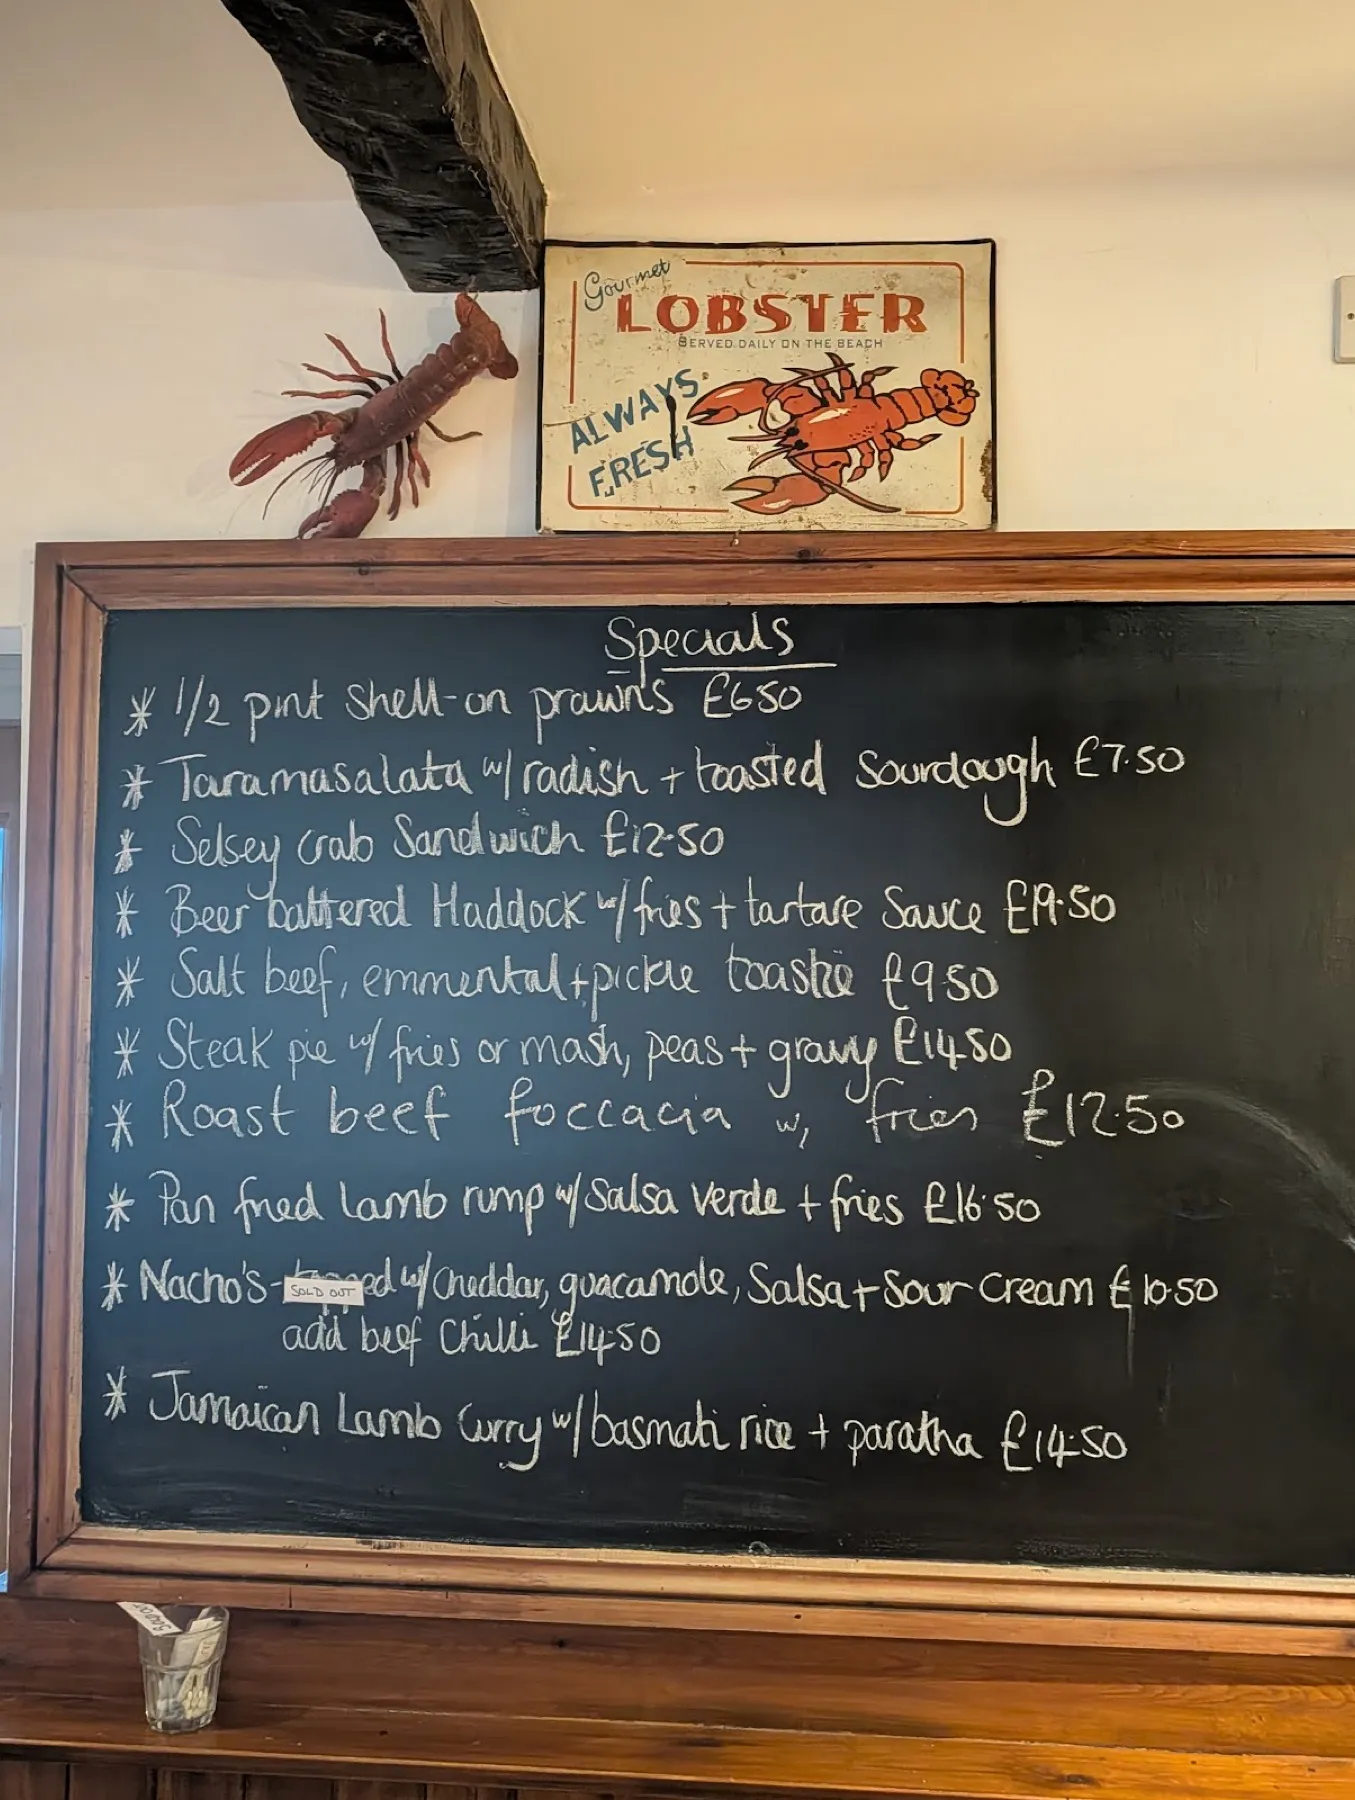 Gourmet
LOBSTER
SERVED DAILY ON THE BEACH
ALWAYS
FRESH
Specials
* 1/2 pint shell-on prawns £6.50
* Taramasalata w/ radish + toasted sourdough £7.50
* Selsey crab Sandwich £12.50
* Beer battered Haddock w/ fries + tartare Sauce £19.50
* Salt beef, emmental + pickle toastie £9.50
* Steak pie w/ fries or mash, peas + gravy £14.50
* Roast beef foccacia w, fries £12.50
* Pan fried lamb rump w/ salsa verde + fries £16.50
* Nacho's - topped w/ cheddar, guacamole, Salsa + sour cream £10.50
SOLD OUT
add beef chilli £14.50
* Jamaican Lamb Curry w/ basmati rice + paratha £14.50